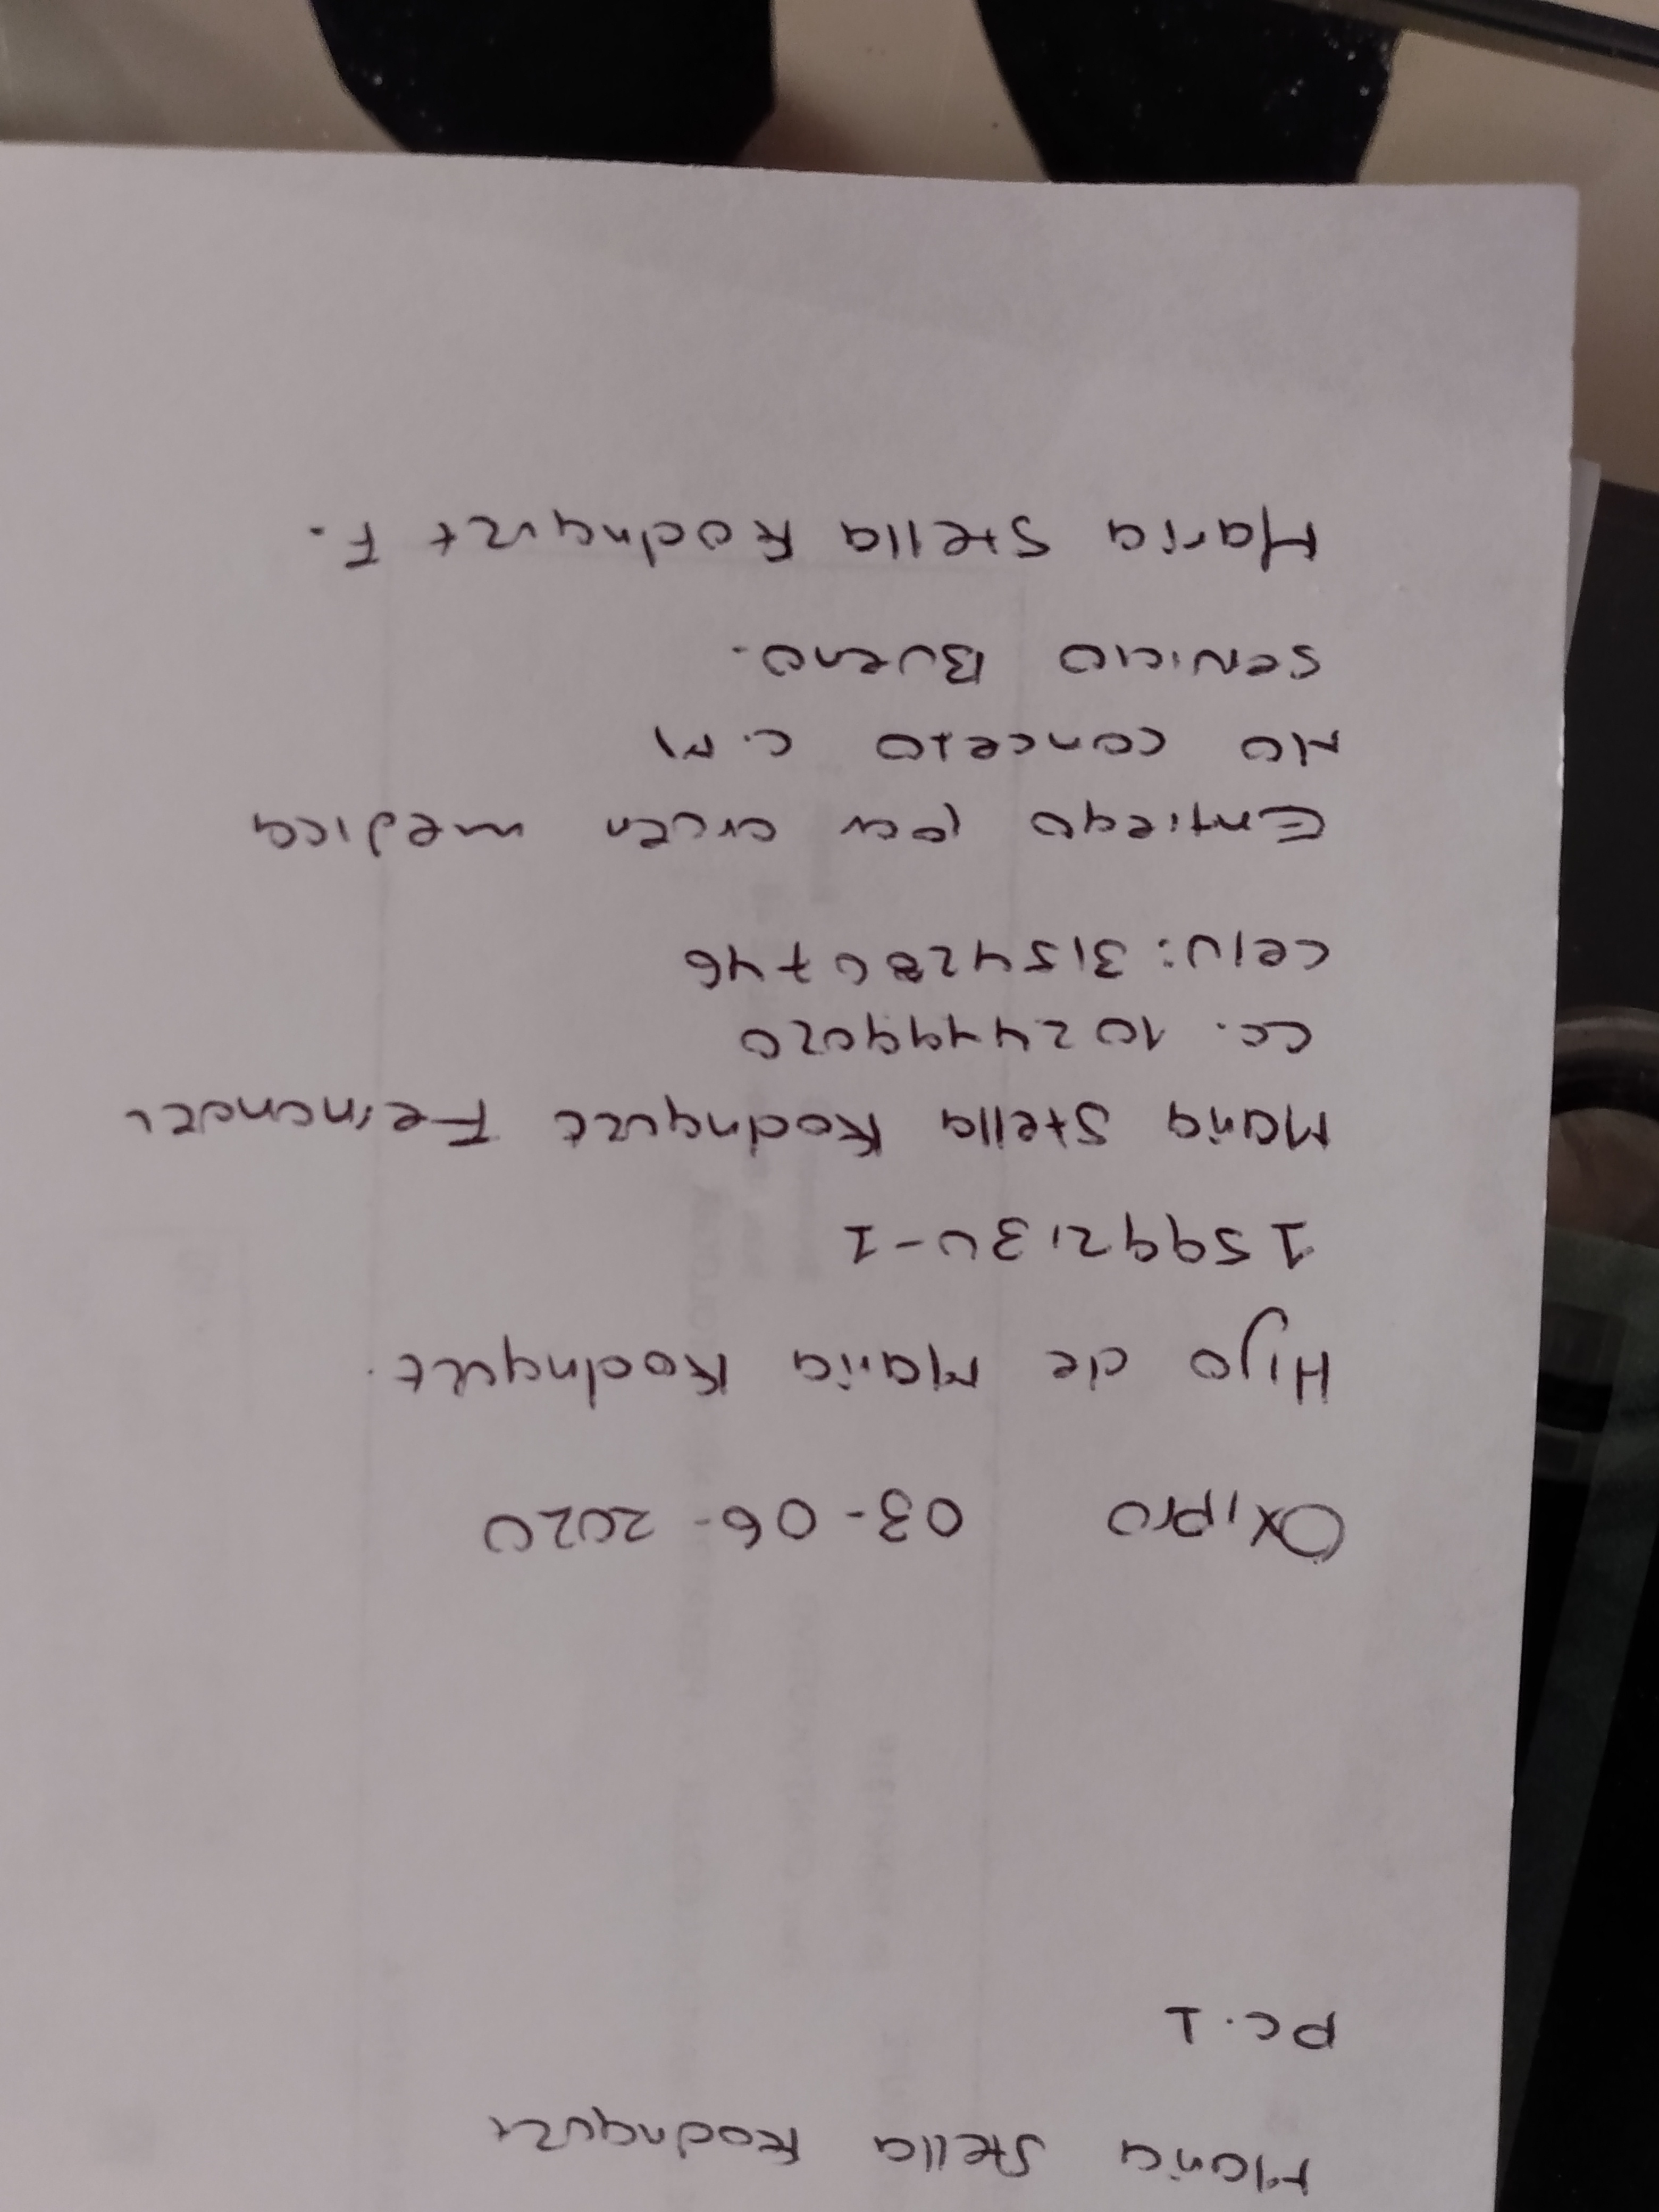 Maria Stella Rodriguez
PC. 1
Oxipro 03-06-2020
Hijo de Maria Rodriguez.
15992130-1
Maria Stella Rodriguez Fernandez
CC. 1024499020
Celu: 3154280746
Entrego por orden medica
No cancelo C.M
Servicio Bueno.
Maria Stella Rodriguez F.